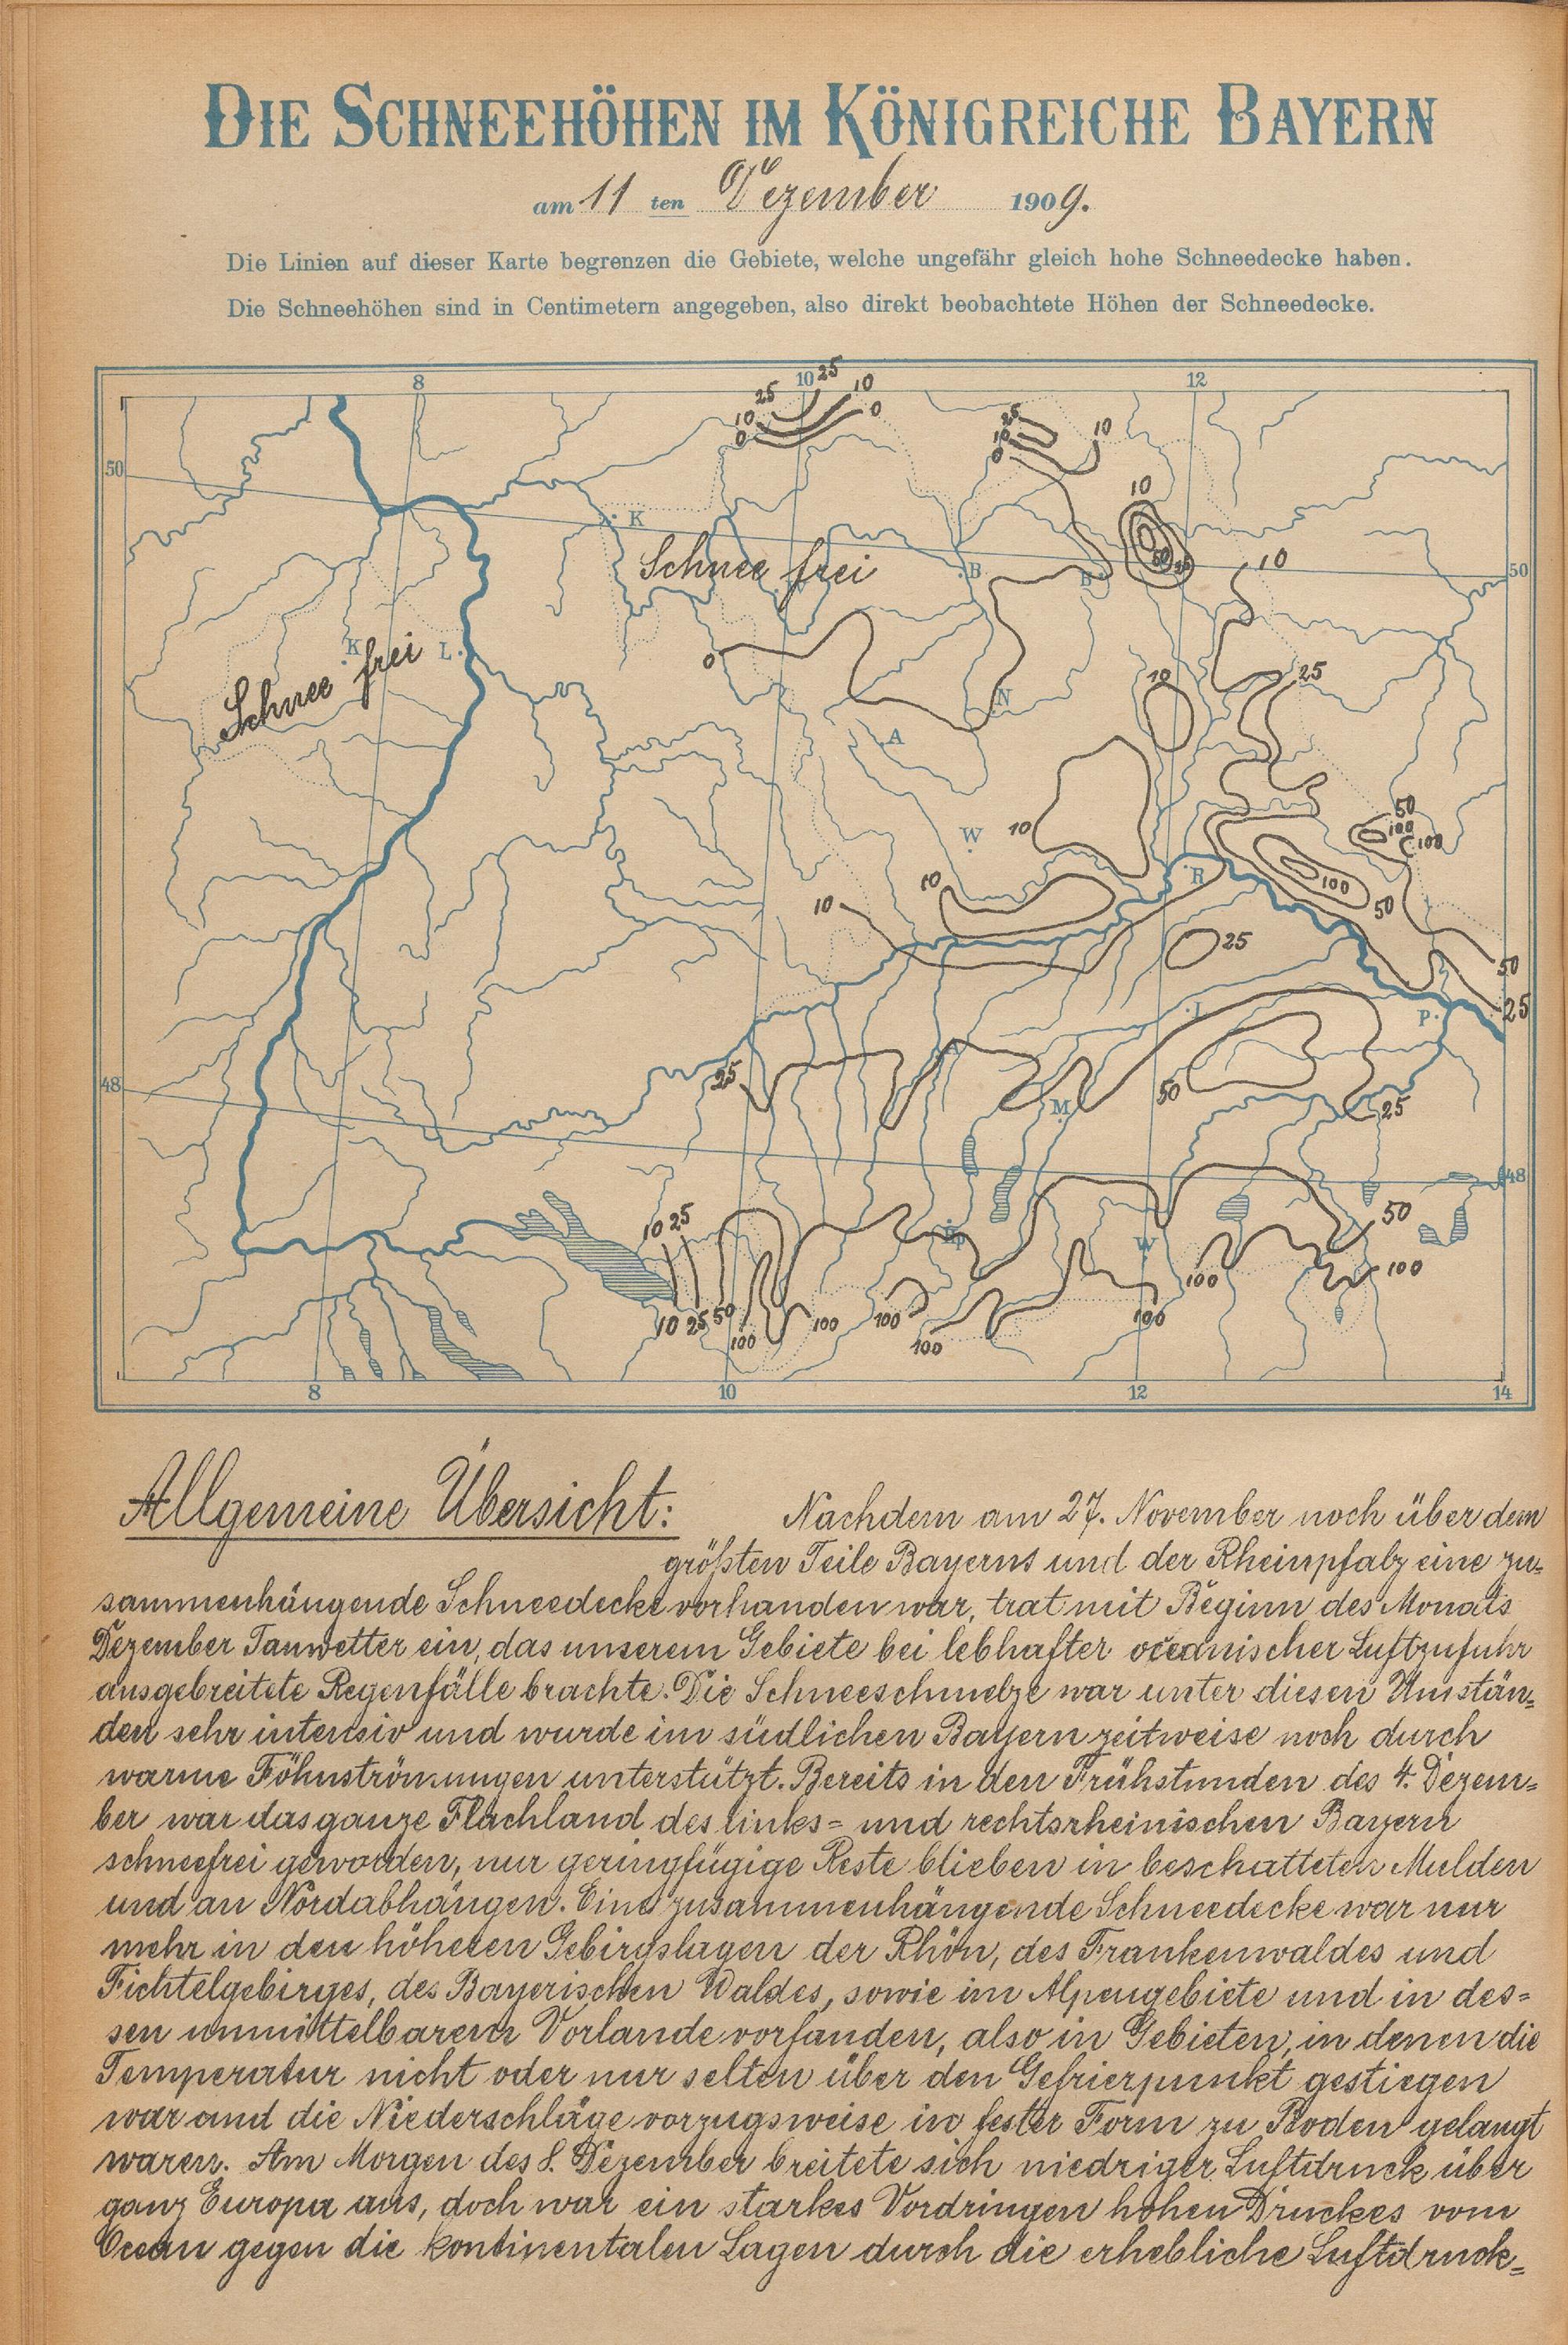 DIE SCHNEEHÖHEN IM KÖNIGREICHE BAYERN
am 11 ten Dezember 1909.
Die Linien auf dieser Karte begrenzen die Gebiete, welche ungefähr gleich hohe Schneedecke haben.
Die Schneehöhen sind in Centimetern angegeben, also direkt beobachtete Höhen der Schneedecke.
8 10 12
25 25 10
10 0
0
25
10 10
0
50
10
K
Schnee frei
B B
50 25
10
50
K L
Schnee frei
0
N
10
25
A
W
10
50
100
100
R
10
10
100
50
25
50
25
I
P
48
25
50
M
25
48
10 25
50
W
100
100
10 25 50
100
100
100
100
100
8 10 12 14
Allgemeine Übersicht:
Nachdem am 27. November noch über dem
größten Teile Bayerns und der Rheinpfalz eine zu-
sammenhängende Schneedecke vorhanden war, trat mit Beginn des Monats
Dezember Tauwetter ein, das unserem Gebiete bei lebhafter oceanischer Luftzufuhr
ausgebreitete Regenfälle brachte. Die Schneeschmelze war unter diesen Umstän-
den sehr intensiv und wurde im südlichen Bayern zeitweise noch durch
warme Föhnströmungen unterstützt. Bereits in den Frühstunden des 4. Dezem-
ber war das ganze Flachland des links- und rechtsrheinischen Bayern
schneefrei geworden, nur geringfügige Reste blieben in beschatteten Mulden
und an Nordabhängen. Eine zusammenhängende Schneedecke war nur
mehr in den höheren Gebirgslagen der Rhön, des Frankenwaldes und
Fichtelgebirges, des Bayerischen Waldes, sowie im Alpengebiete und in des-
sen unmittelbarem Vorlande vorfanden, also in Gebieten, in denen die
Temperatur nicht oder nur selten über den Gefrierpunkt gestiegen
war und die Niederschläge vorzugsweise in fester Form zu Boden gelangt
waren. Am Morgen des 8. Dezember breitete sich niedriger Luftdruck über
ganz Europa aus, doch war ein starkes Vordringen hohen Druckes vom
Ocean gegen die kontinentalen Lagen durch die erhebliche Luftdruck-